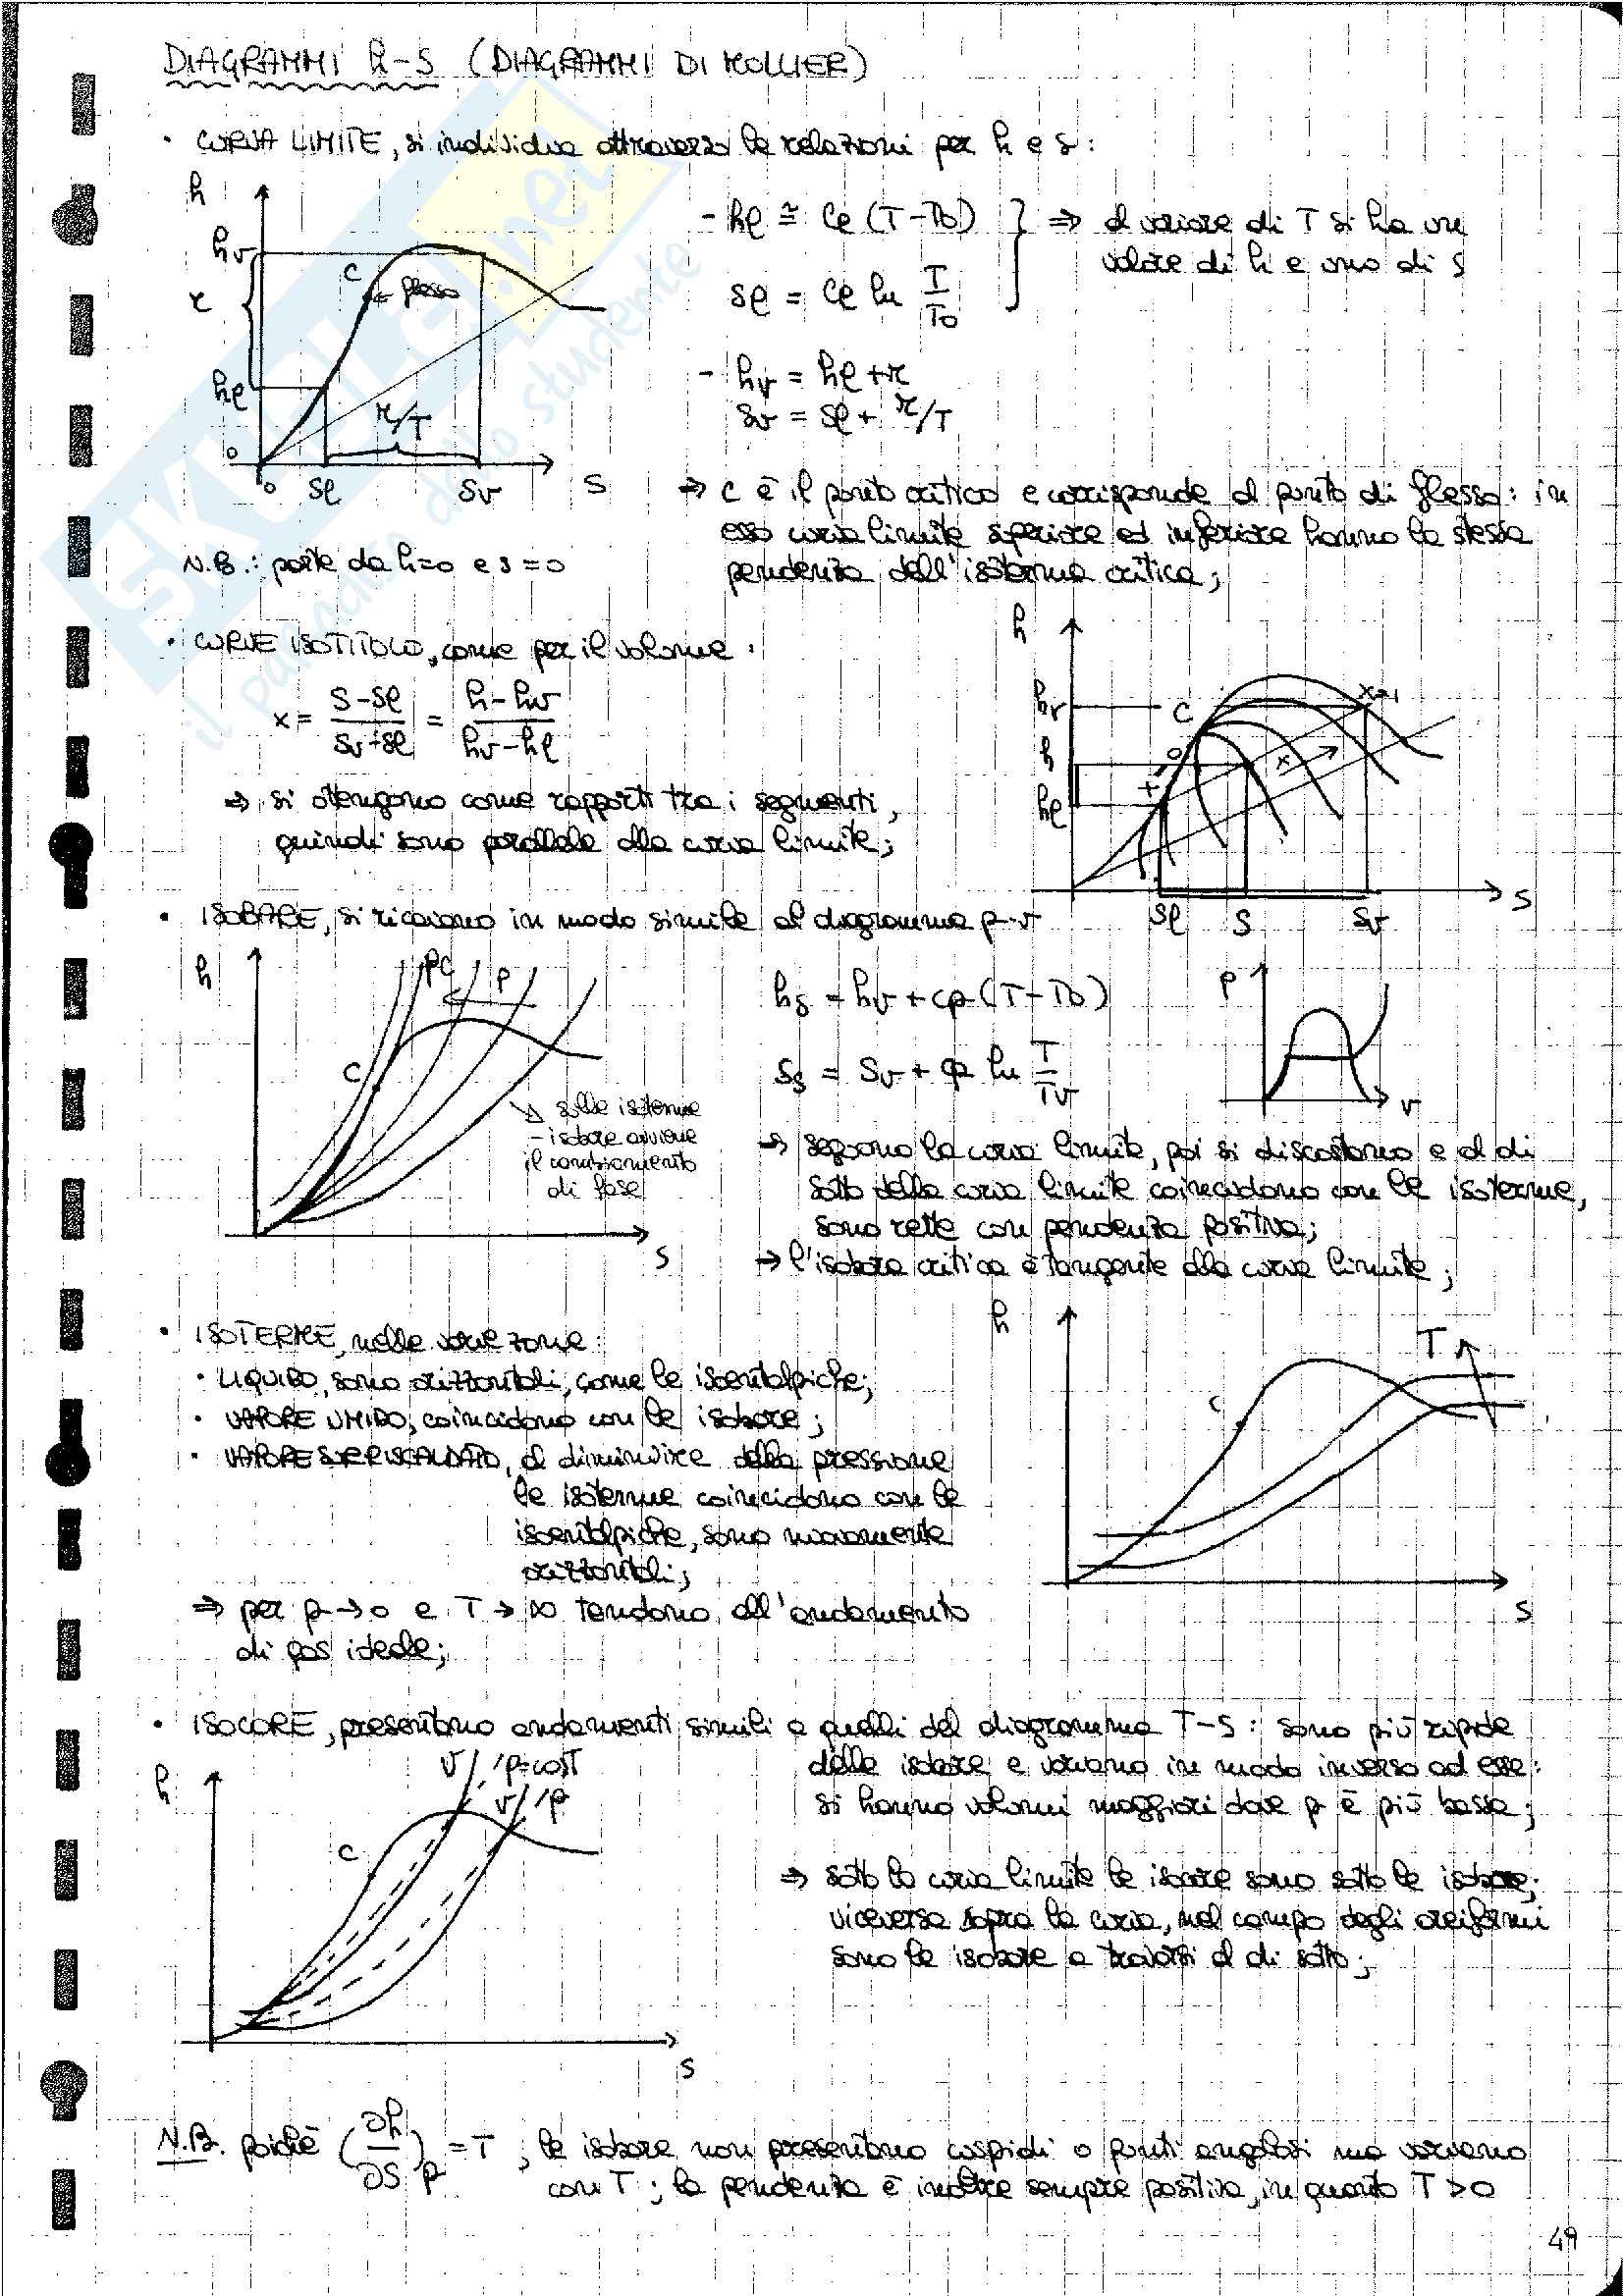 DIAGRAMMI h-S (DIAGRAMMI DI MOLLIER)
• CURVA LIMITE, si individua attraverso le relazioni per h e s:
h
hv
r
hl
0
c
← flesso
r/T
0 Sl Sv S
- hl ≅ Cl (T-T0)
sl = Cl ln T/T0
} ⇒ al variare di T si ha un
valore di h e uno di s
- hv = hl + r
sv = sl + r/T
N.B.: parte da h=0 e s=0
⇒ C è il punto critico e corrisponde al punto di flesso: in
esso curva limite superiore ed inferiore hanno la stessa
pendenza dell'isoterma critica;
• CURVE ISOTITOLO, come per il volume:
x = S-Sl / Sv+Sl = h-hv / hv-hl
⇒ si ottengono come rapporti tra i segmenti,
quindi sono parallele alla curva limite;
h
hv
h
hl
C
x=1
x
Sl S Sv S
• ISOBARE, si ricavano in modo simile al diagramma p-v
h
pc
p
C
S
↘ sulle isoterme
- isobare avviene
il cambiamento
di fase
hs = hv + cp (T-T0)
Ss = Sv + cp ln T/Tv
p
v
⇒ seguono la curva limite, poi si discostano e al di
sotto della curva limite coincidono con le isoterme,
sono rette con pendenza positiva;
→ l'isobara critica è tangente alla curva limite;
• ISOTERME, nelle varie zone:
• LIQUIDO, sono orizzontali, come le isoentalpiche;
• VAPORE UMIDO, coincidono con le isobare;
• VAPORE SURRISCALDATO, al diminuire della pressione
le isoterme coincidono con le
isoentalpiche, sono nuovamente
orizzontali;
⇒ per p → 0 e T → ∞ tendono all'andamento
di gas ideale;
h
T
C
S
• ISOCORE, presentano andamenti simili a quelli del diagramma T-S: sono più ripide
delle isobare e variano in modo inverso ad esse:
si hanno volumi maggiori dove p è più bassa;
h
v p=cost
v p
C
S
⇒ sotto la curva limite le isocore sono sotto le isobare;
viceversa sopra la curva, nel campo degli aeriformi
sono le isobare a trovarsi al di sotto;
N.B. poiché (∂h/∂S)p = T, le isobare non presentano cuspidi o punti angolosi ma variano
con T; la pendenza è inoltre sempre positiva, in quanto T>0
49
SKUOLA.net
il paradiso dello studente